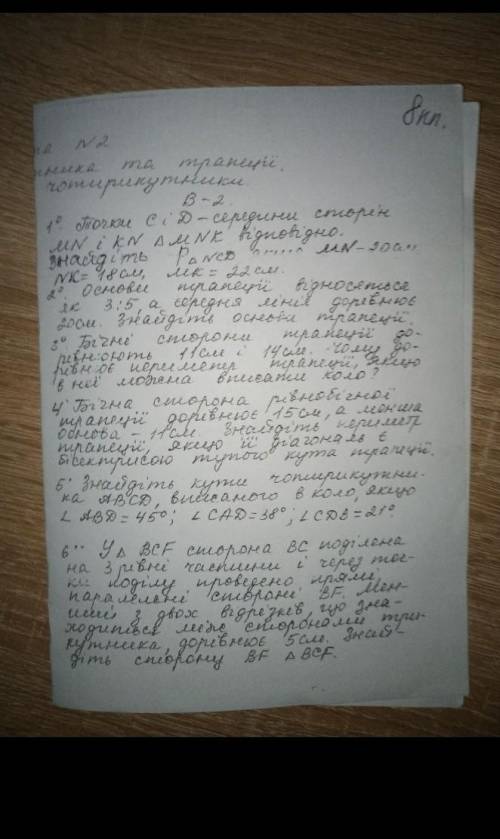 8 кл.
на N2
тника та трапеції.
чотирикутники.
В-2.
1° Точки С і D-середини сторін
MN і KN ΔMNK відповідно.
Знайдіть PΔNCD MN-20см
NK=18см, MK=22см.
2° Основи трапеції відносяться
як 3:5, а середня лінія дорівнює
20см. Знайдіть основи трапеції.
3° Бічні сторони трапеції до-
рівнюють 11см і 14см. Чому до-
рівнює периметр трапеції, якщо
в неї можна вписати коло?
4° Бічна сторона рівнобічної
трапеції дорівнює 15см, а менша
основа - 11см. Знайдіть периметр
трапеції, якщо її діагональ є
бісектрисою тупого кута трапеції.
5° Знайдіть кути чотирикутни-
ка ABCD, вписаного в коло, якщо
∠ABD=45°; ∠CAD=38°; ∠CDB=21°
6°° У Δ BCF сторона BC поділена
на 3 рівні частини і через точ-
ки поділу проведено прямі,
паралелні стороні BF. Мен-
ший з двох відрізків, що зна-
ходиться між сторонами три-
кутника, дорівнює 5см. Знай-
діть сторону BF ΔBCF.